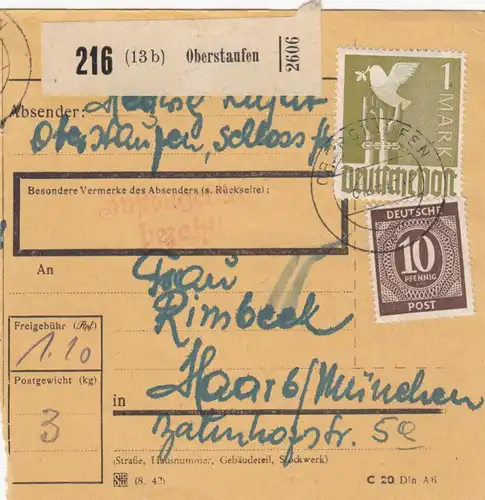 216 (13b) Oberstaufen 2606
1 MARK
Deutsche Post
Absender:
Oberstaufen, Schloss
Besondere Vermerke des Absenders (s. Rückseite):
DEUTSCHE
10
PFENNIG
POST
An
Frau
Rimbeck
Freigebühr (Rpf.)
1.10
Postgewicht (kg)
3
in Haar b/München
Bahnhofstr. 5a
(Straße, Hausnummer, Gebäudeteil, Stockwerk)
(8. 42)
C 20 Din A6